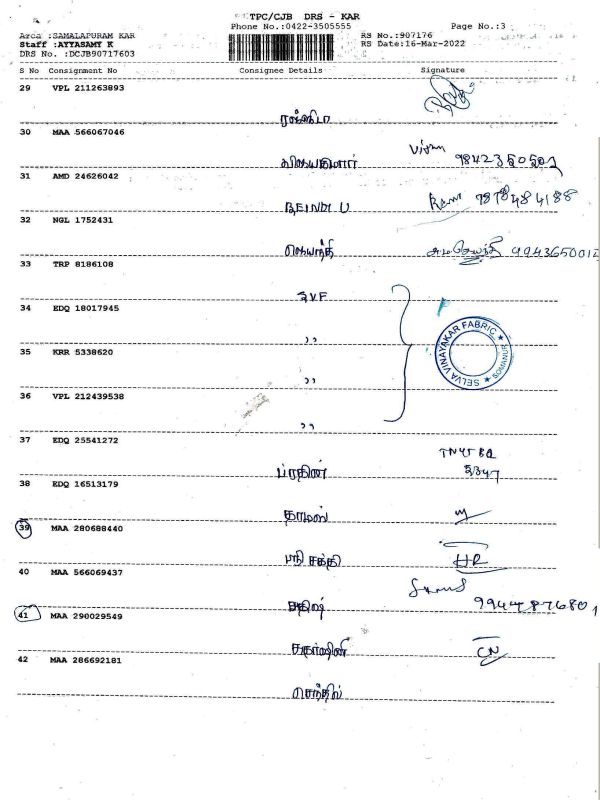 TPC/CJB DRS - KAR
Area :SAMALAPURAM KAR Phone No.:0422-3505555 Page No.:3
Staff :AYYASAMY K RS No.:907176
DRS No. :DCJB90717603 RS Date:16-Mar-2022
S No Consignment No Consignee Details Signature
29 VPL 211263893
30 MAA 566067046
விஜயகுமார் 9842350501
31 AMD 24626042
BEINDI U Ramu 9878484188
32 NGL 1752431
ஜெயந்தி 9943650012
33 TRP 8186108
SVF
34 EDQ 18017945
,,
SELVA VINAYAKAR FABRIC ★ SOMANUR ★
35 KRR 5338620
,,
36 VPL 212439538
,,
37 EDQ 25541272
பிரதின் 5347
38 EDQ 16513179
தாமஸ்
39 MAA 280688440
ஸ்ரீ சக்தி HR
40 MAA 566069437
சதிஷ் 9944876801
41 MAA 290029549
சுதாஷினி CN
42 MAA 286692181
செந்தில்